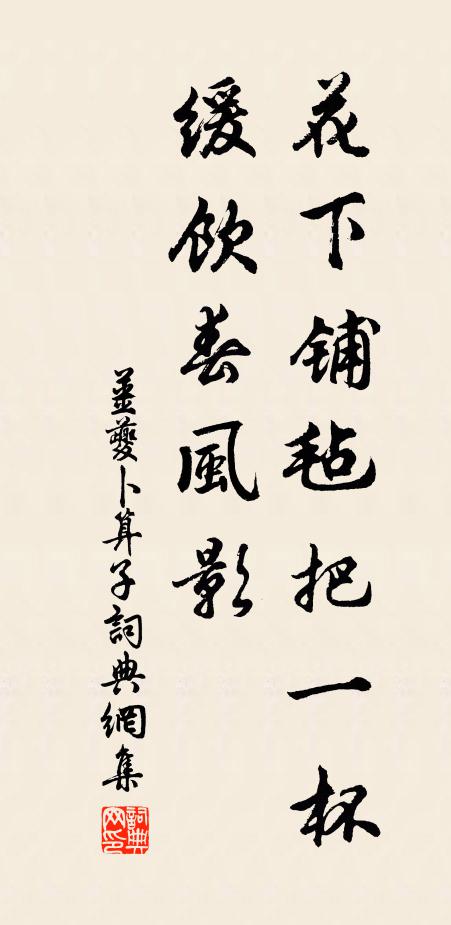 花下铺毡把一杯
缓飲春風影
姜夔卜算子詞典網集
詞典
网印